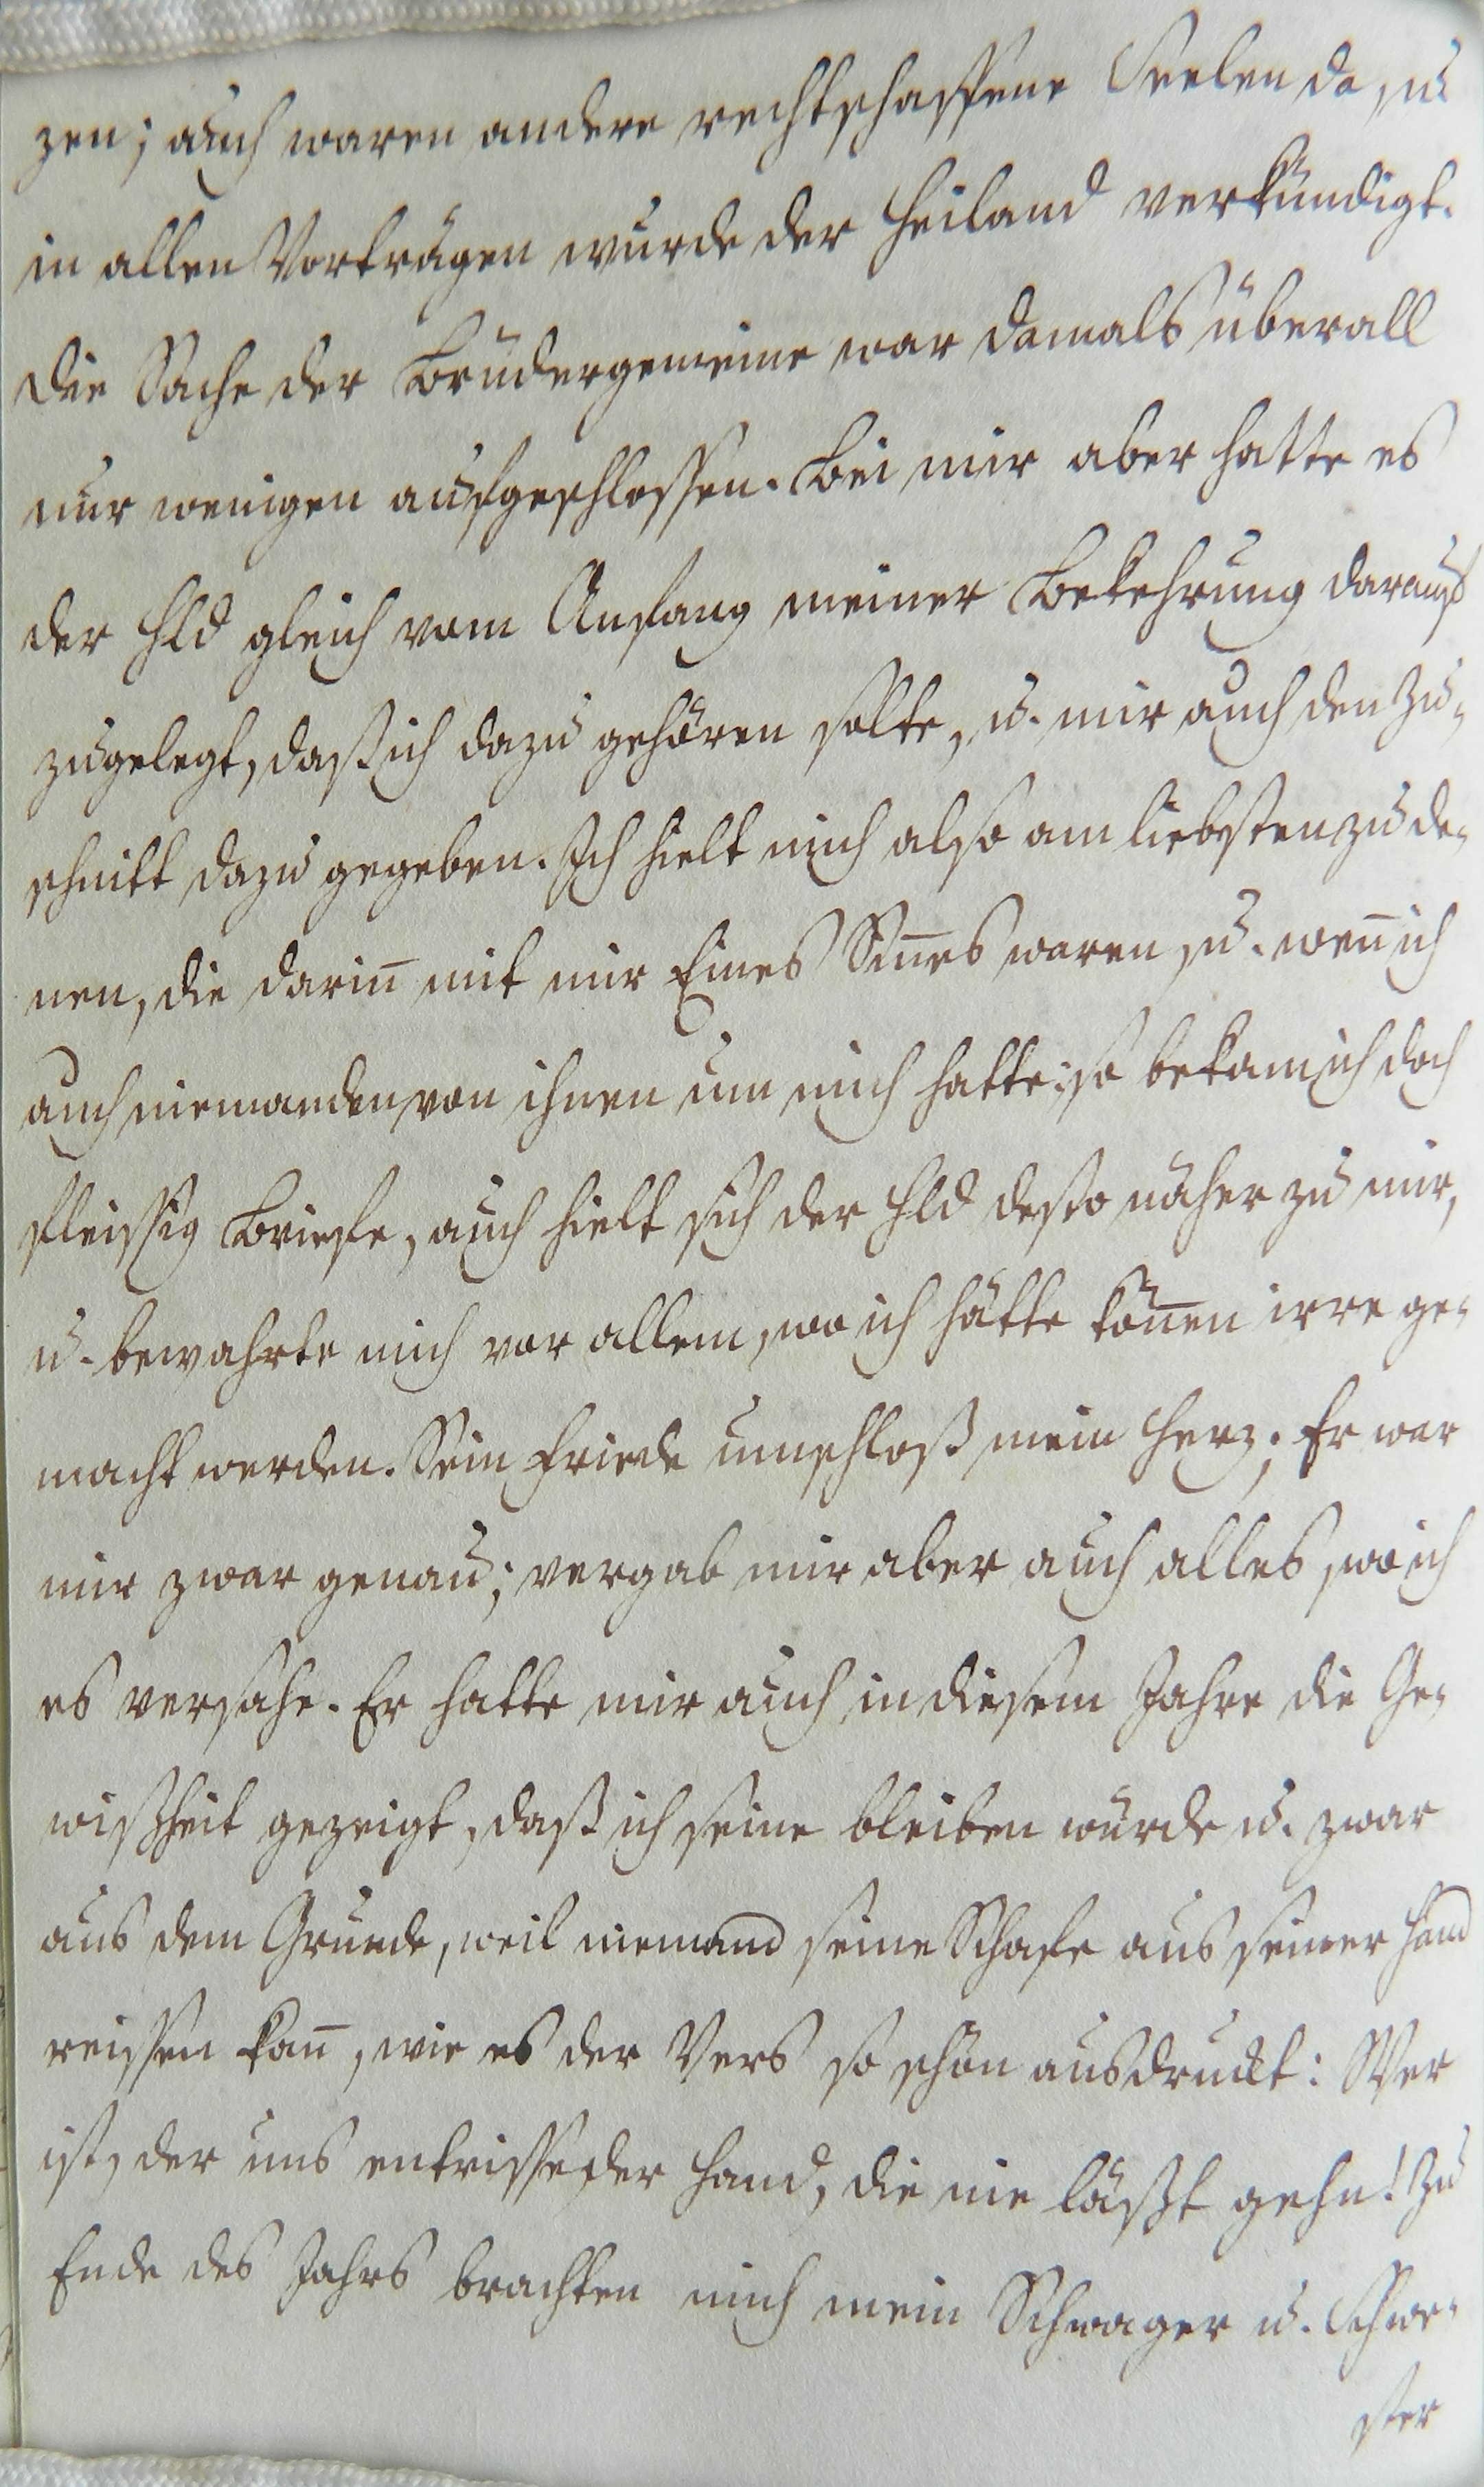 zen; auch waren andere rechtschaffene Seelen da, u.
in allen Vorträgen wurde der Heiland verkündigt.
Die Sache der Brüdergemeine war damals überall
nur wenigen aufgeschlossen. Bei mir aber hatte es
der Hld gleich vom Anfang meiner Bekehrung darauf
zugelegt, daß ich dazu gehören solte, u. mir auch den Zu-
schnitt dazu gegeben. Ich hielt mich also am liebsten zu de-
nen, die darin̄ mit mir Eines Sin̄es waren, u. wen̄ ich
auch niemanden von ihnen um mich hatte: so bekam ich doch
fleissig Briefe, auch hielt sich der Hld desto näher zu mir,
u. bewahrte mich vor allem, wo ich hätte kön̄en irre ge-
macht werden. Sein Friede umschloß mein Herz; Er war
mir zwar genau; vergab mir aber auch alles, wo ich
es versahe. Er hatte mir auch in diesem Jahre die Ge-
wißheit gezeigt, daß ich seine bleiben würde u. zwar
aus dem Grunde, weil niemand seine Schafe aus seiner Hand
reissen kan̄, wie es der Vers so schön ausdruckt: Wer
ist, der uns entrisse der Hand, die nie läßt gehn! Zu
Ende des Jahrs brachten mich mein Schwager u. Schwe-
ster